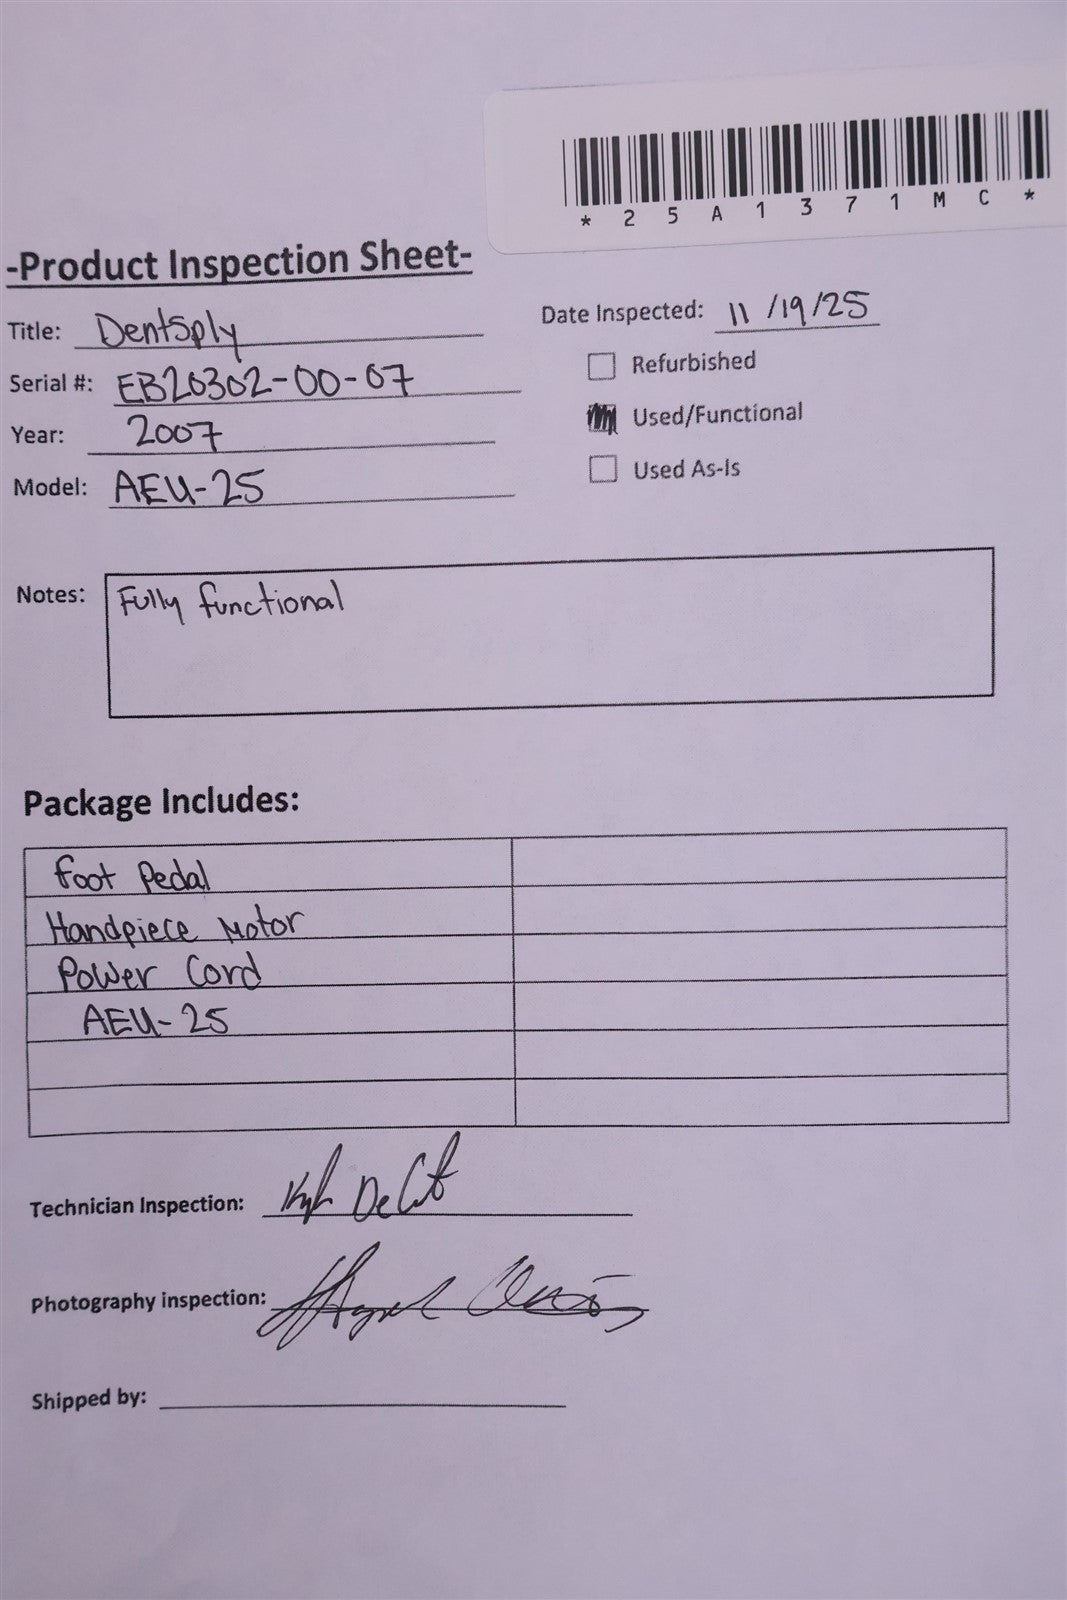 * 2 5 A 1 3 7 1 M C *
-Product Inspection Sheet-
Title: Dentsply
Date Inspected: 11/19/25
Serial #: EB20302-00-07
Refurbished
Year: 2007
Used/Functional
Model: AEU-25
Used As-Is
Notes: Fully functional
Package Includes:
Foot Pedal
Handpiece Motor
Power Cord
AEU-25
Technician Inspection:
Photography inspection:
Shipped by: